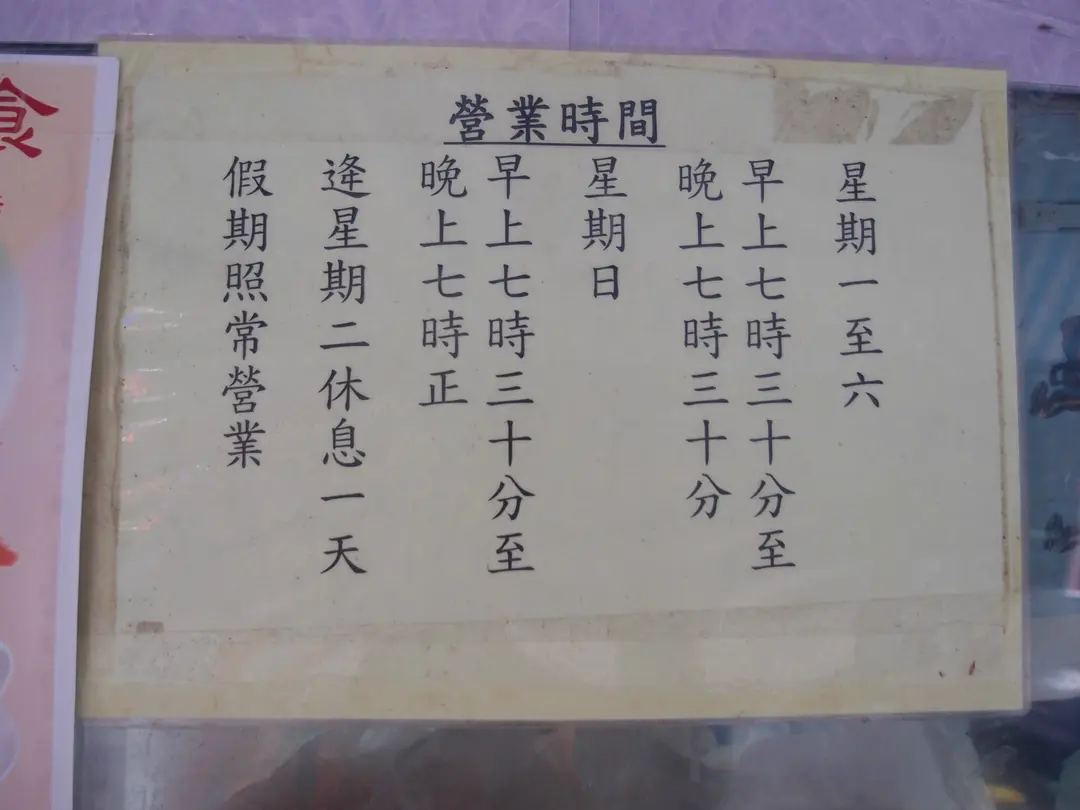 營業時間
星期一至六
早上七時三十分至
晚上七時三十分
星期日
早上七時三十分至
晚上七時正
逢星期二休息一天
假期照常營業
食